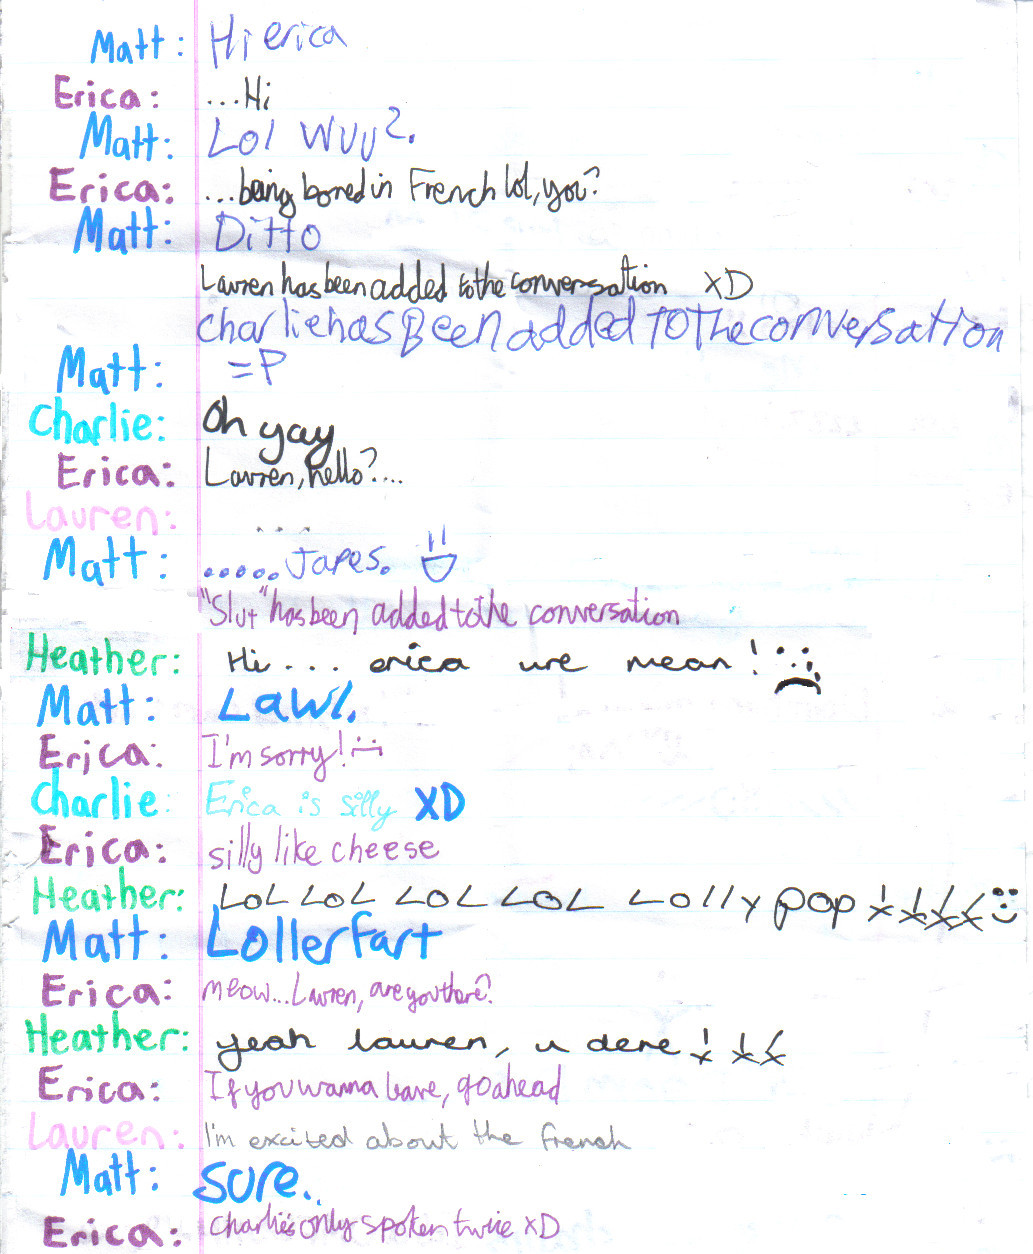 Matt: Hi erica
Erica: ...Hi
Matt: Lol WUU2.
Erica: ...being bored in French lol, you?
Matt: Ditto
Lauren has been added to the conversation XD
Charlie has Been added To The conversation
Matt: =P
Charlie: Oh yay
Erica: Lauren, hello?....
Lauren: ...
Matt: ..... Japes.
"Slut" has been added to the conversation
Heather: Hi... erica ure mean! :(
Matt: LAWL.
Erica: I'm sorry! :(
Charlie: Erica is silly XD
Erica: silly like cheese
Heather: LOL LOL LOL LOL LOlly pop !!!! :)
Matt: Lollerfart
Erica: meow... Lauren, are you there?
Heather: yeah lauren, u dere! !!
Erica: If you wanna leave, go ahead
Lauren: I'm excited about the french
Matt: Sure..
Erica: Charlie's only spoken twice XD